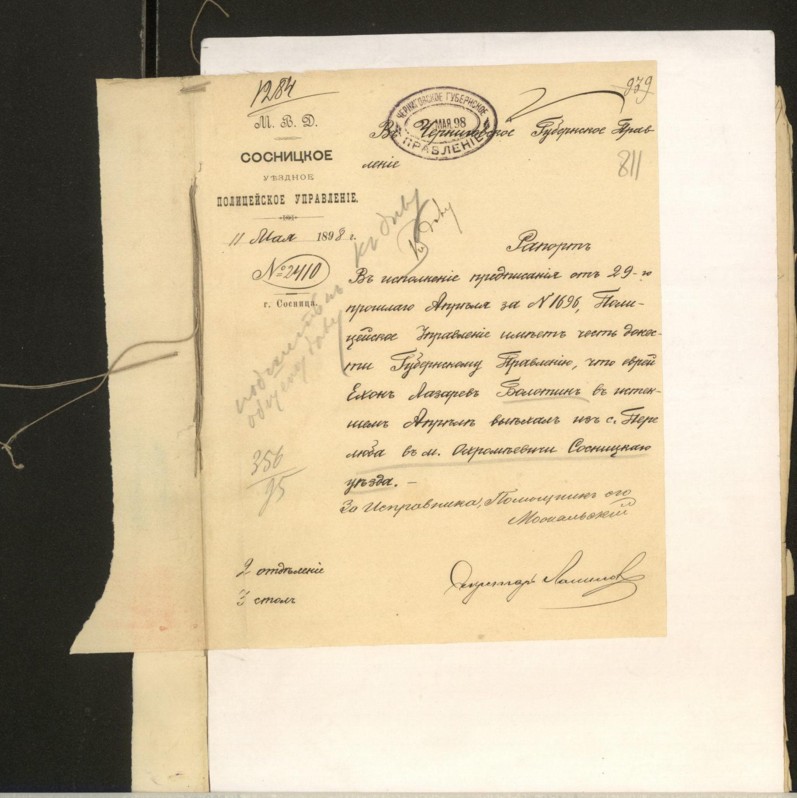 1284
979
М. В. Д.
СОСНИЦКОЕ
УѢЗДНОЕ
ПОЛИЦЕЙСКОЕ УПРАВЛЕНІЕ.
11 Мая 1898 г.
№ 2410
г. Сосница.
ЧЕРНИГОВСКОЕ ГУБЕРНСКОЕ
МАЯ 98
ПРАВЛЕНІЕ
Въ Черниговское Губернское Прав-
леніе
811
къ дѣлу
Рапортъ
Въ исполненіе предписанія отъ 29-го
прошлаго Апрѣля за № 1696, Поли-
цейское Управленіе имѣетъ честь донес-
ти Губернскому Правленію, что еврей
Елхонъ Лазаревъ Болотинъ в истек-
шемъ Апрѣлѣ выѣхалъ изъ с. Пере
люба въ м. Охромѣевичи Сосницкаго
уѣзда. —
За Исправника, Помощникъ его
Секретарь
356
95
2 отдѣленіе
3 столъ